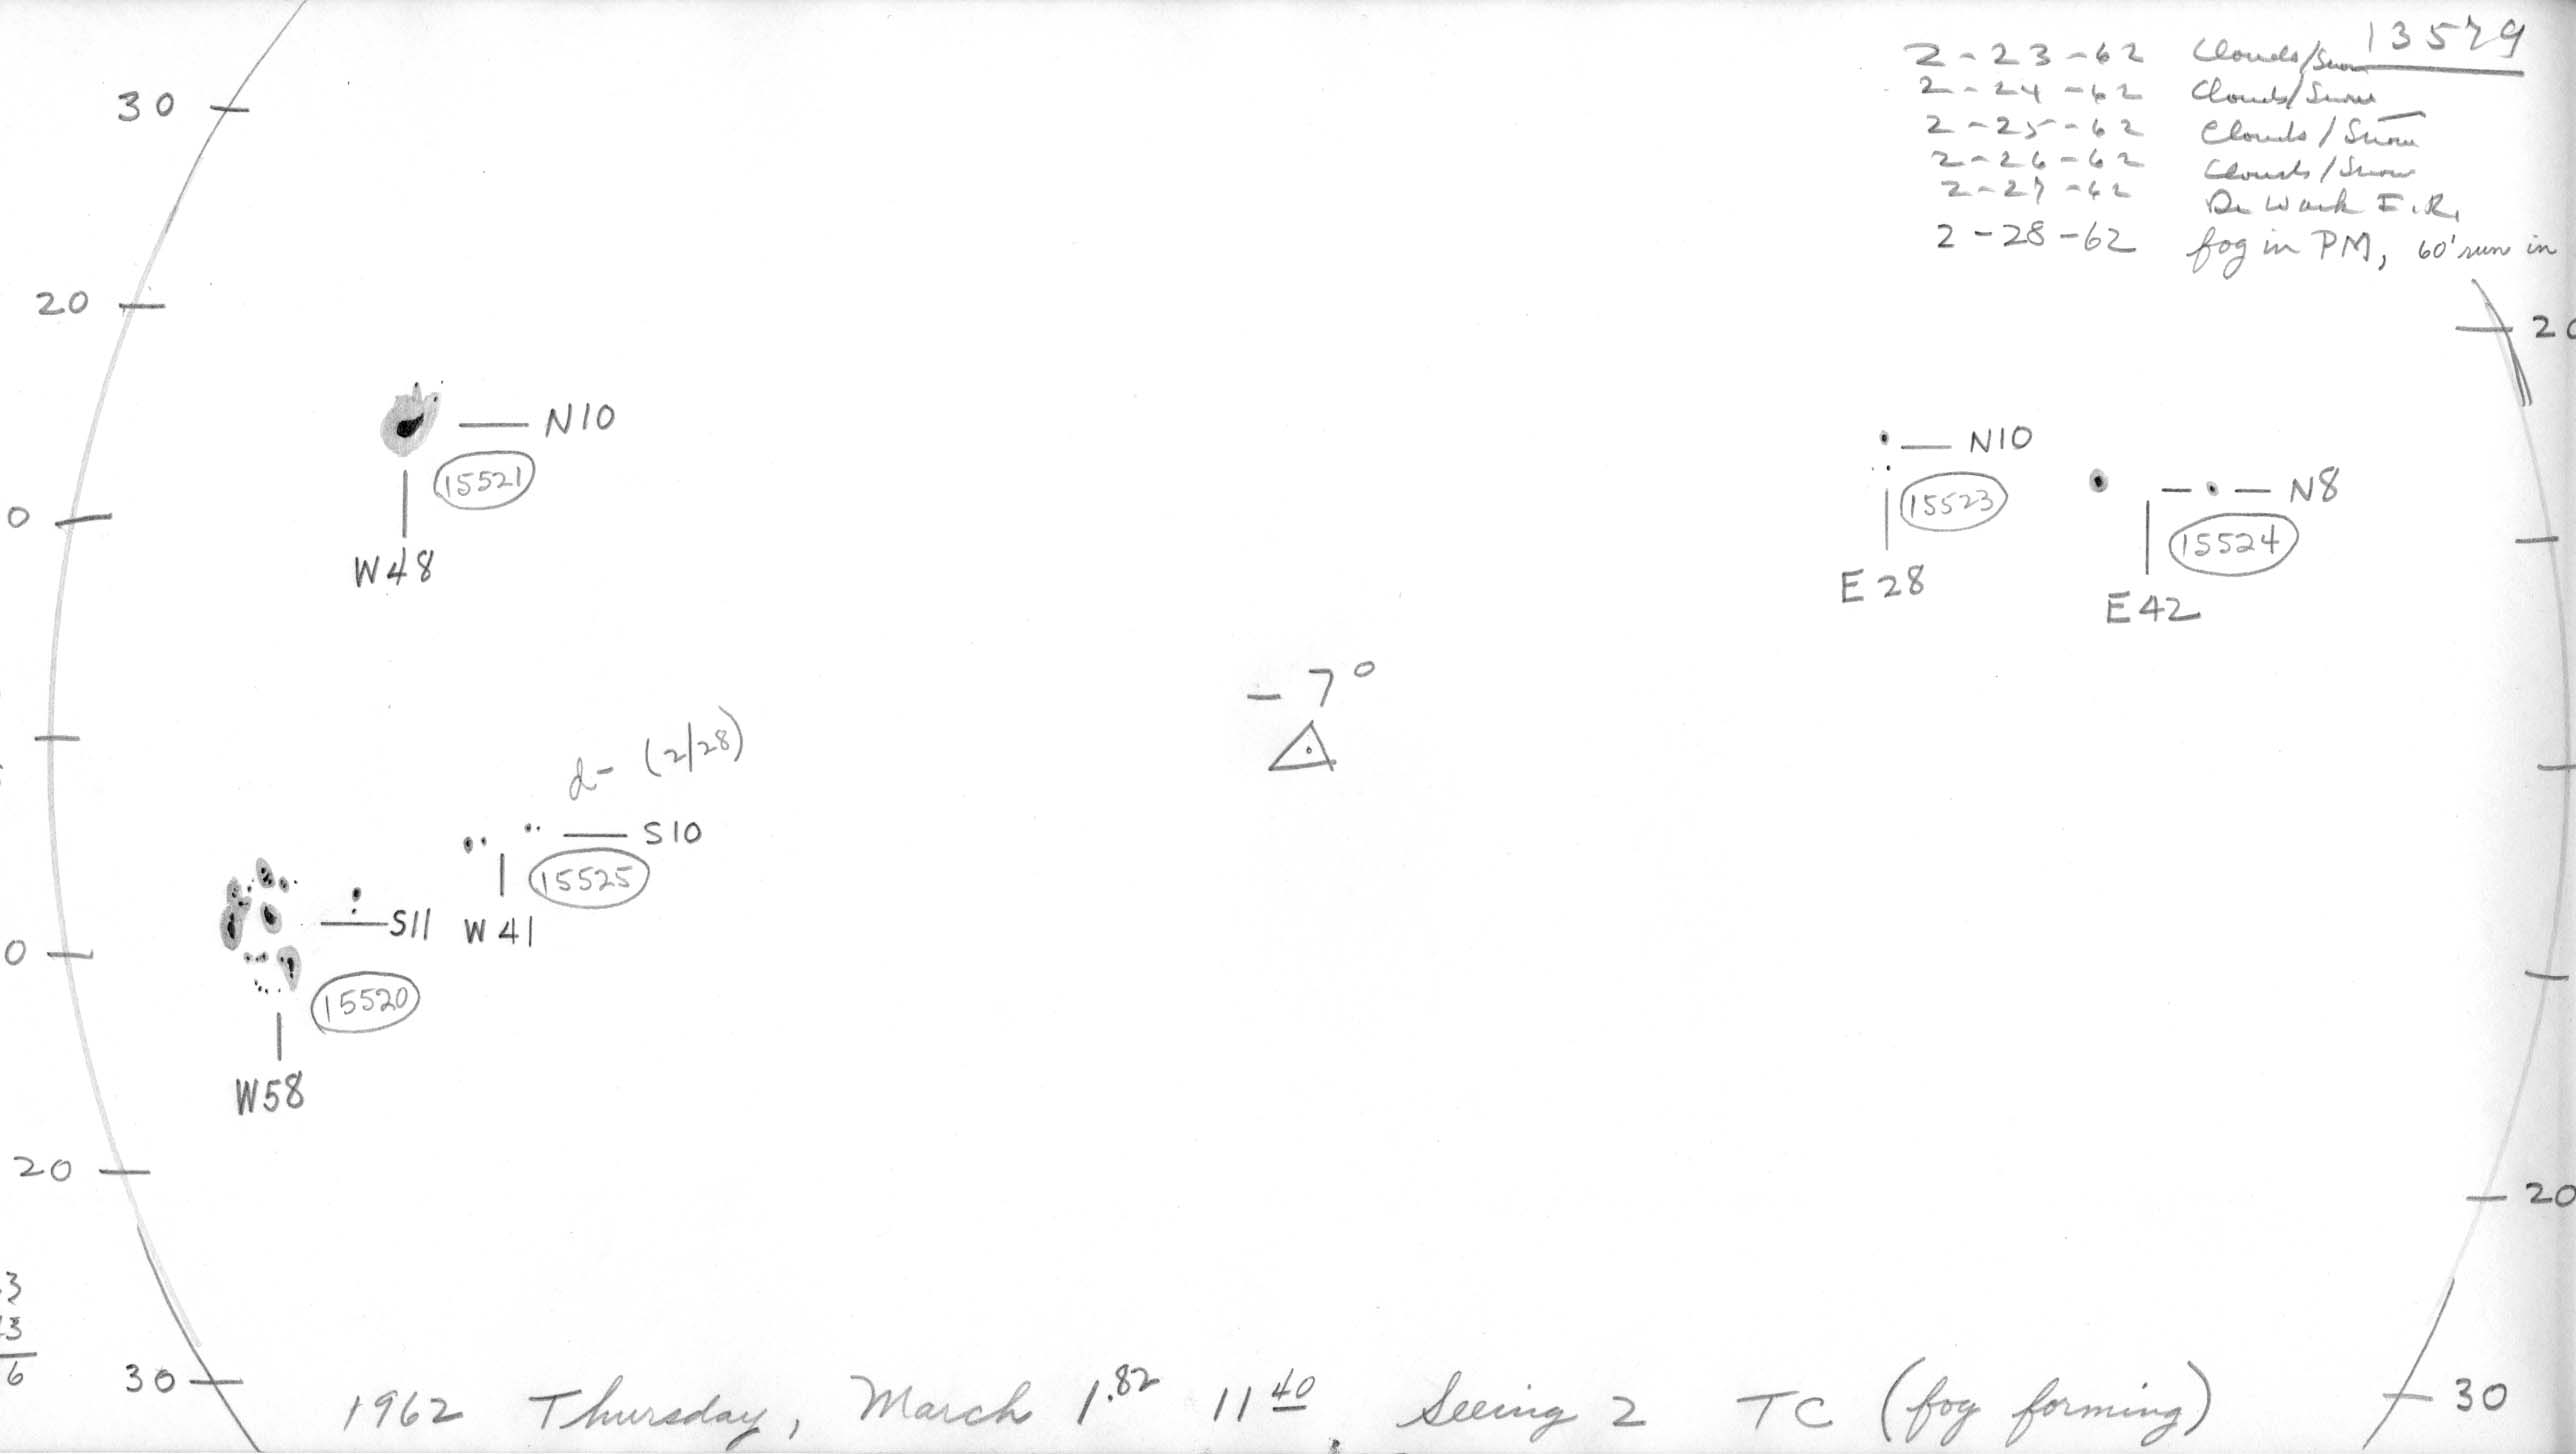 13579
2-23-62 Clouds/Snow
2-24-62 Clouds/Snow
2-25-62 Clouds/Snow
2-26-62 Clouds/Snow
2-27-62 Work I.R.
2-28-62 fog in PM, 60' run in
30
20
20
N10
15521
W48
0
N10
15523
E 28
N8
15524
E 42
-7°
d- (2/28)
S10
15525
W 41
S11
15520
W58
0
20
20
3
3
6
30
30
1962 Thursday, March 1.82 11 40 Seeing 2 TC (fog forming)